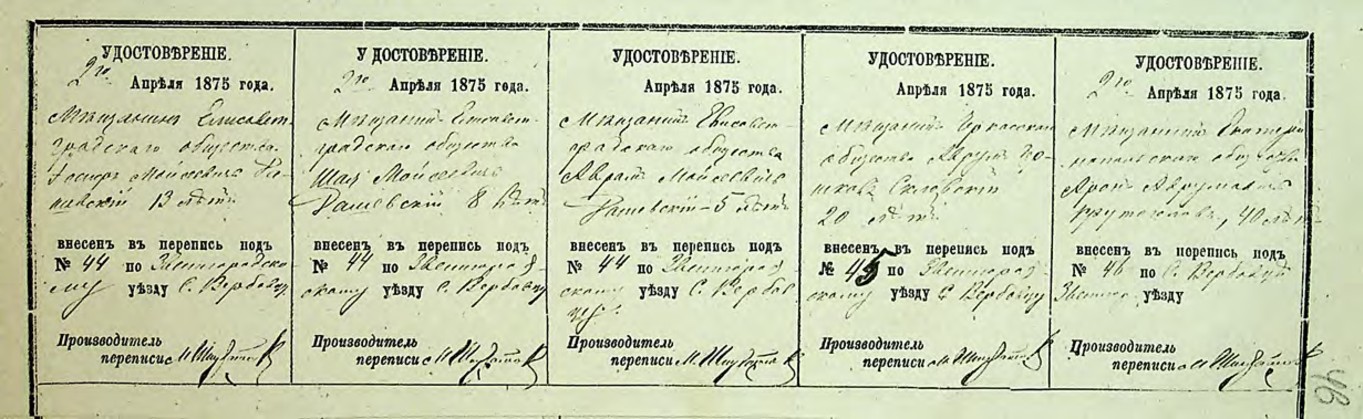 УДОСТОВѢРЕНІЕ.
2го Апрѣля 1875 года.
Мѣщанинъ Елисавет-
градскаго общества
Іосифъ Мойсеевичъ
13 лѣтъ
внесенъ въ перепись подъ
№ 44 по Звенигородско-
му уѣзду С. Вербовцу
Производитель
переписи М.
У ДОСТОВѢРЕНІЕ.
2го Апрѣля 1875 года.
Мѣщанинъ Елисавет-
градскаго общества
Мойсеевичъ
Рашевскій 8 лѣтъ
внесенъ въ перепись подъ
№ 44 по Звенигород-
скому уѣзду С. Вербовцу
Производитель
переписи М.
УДОСТОВѢРЕНІЕ.
Апрѣля 1875 года.
Мѣщанинъ Елисавет-
градскаго общества
Абрамъ Мойсеевичъ
Рашевскій 5 лѣтъ
внесенъ въ перепись подъ
№ 44 по Звенигород-
скому уѣзду С. Вербов-
цу.
Производитель
переписи М.
УДОСТОВѢРЕНІЕ.
Апрѣля 1875 года.
Мѣщанинъ
общества Аврумъ
20 лѣтъ
внесенъ въ перепись подъ
№ 45 по Звенигород-
скому уѣзду С. Вербовцу
Производитель
переписи М.
УДОСТОВѢРЕНІЕ.
2го Апрѣля 1875 года.
Мѣщанинъ Екатери-
нопольскаго общества
Аронъ Аврумовичъ
40 лѣтъ
внесенъ въ перепись подъ
№ 46 по С. Вербовцу
Звенигор. уѣзду
Производитель
переписи М.
46